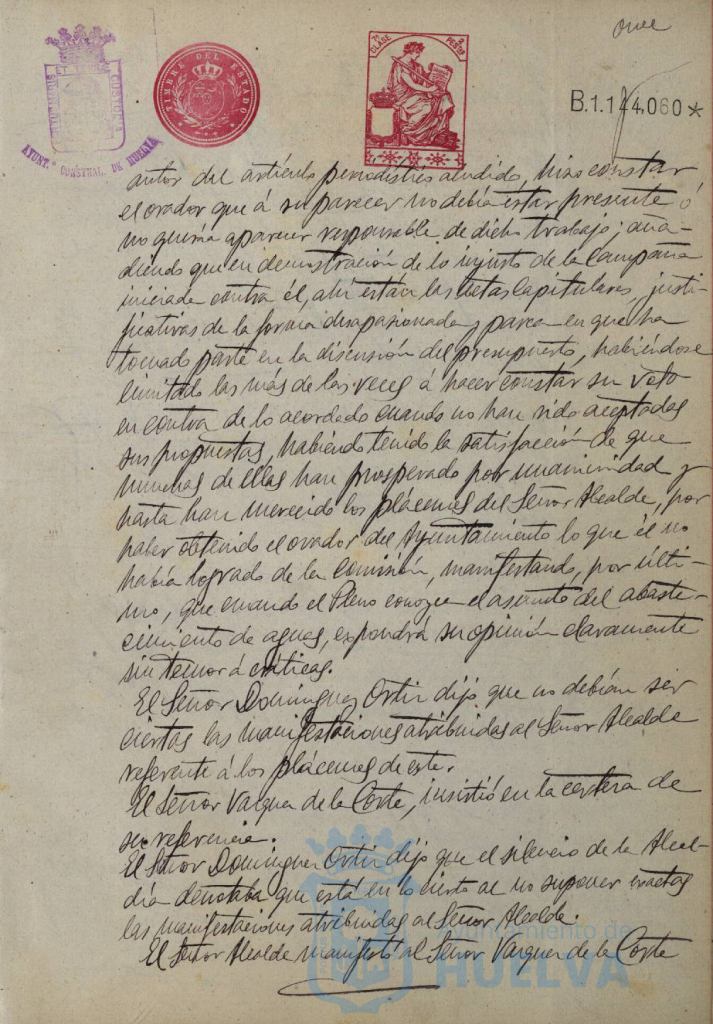 once
TIMBRE DEL ESTADO
7ª CLASE 2 PESETAS
B.1.144.060*
CUSTODIA
AYUNT.º CONSTNAL. DE HUELVA
autor del artículo periodístico aludido, hizo constar
el orador que á su parecer no debía estar presente ó
no quería aparecer responsable de dicho trabajo; aña-
diendo que en demostración de lo injusto de la campaña
iniciada contra él, ahí están las Actas Capitulares, justi-
ficativas de la forma desapasionada y parca en que ha
tomado parte en la discusión del presupuesto, habiéndose
limitado las más de las veces á hacer constar su voto
en contra de lo acordado cuando no han sido aceptadas
sus propuestas, habiendo tenido la satisfacción de que
muchas de ellas han prosperado por unanimidad y
hasta han merecido los plácemes del Señor Alcalde, por
haber obtenido el orador del Ayuntamiento lo que él no
había logrado de la Comisión, manifestando, por últi-
mo, que cuando el Pleno conozca el asunto del abaste-
cimiento de aguas, expondrá su opinión claramente
sin temor á críticas.
El Señor Dominguez Ortiz dijo que no debían ser
ciertas las manifestaciones atribuidas al Señor Alcalde
referente á los plácemes de este.
El Señor Vazquez de la Corte, insistió en la certeza de
su referencia.
El Señor Dominguez Ortiz dijo que el silencio de la Alcal-
día denotaba que está en lo cierto al no suponer exactas
las manifestaciones atribuidas al Señor Alcalde.
El Señor Alcalde manifestó al Señor Vazquez de la Corte
Ayuntamiento de
HUELVA